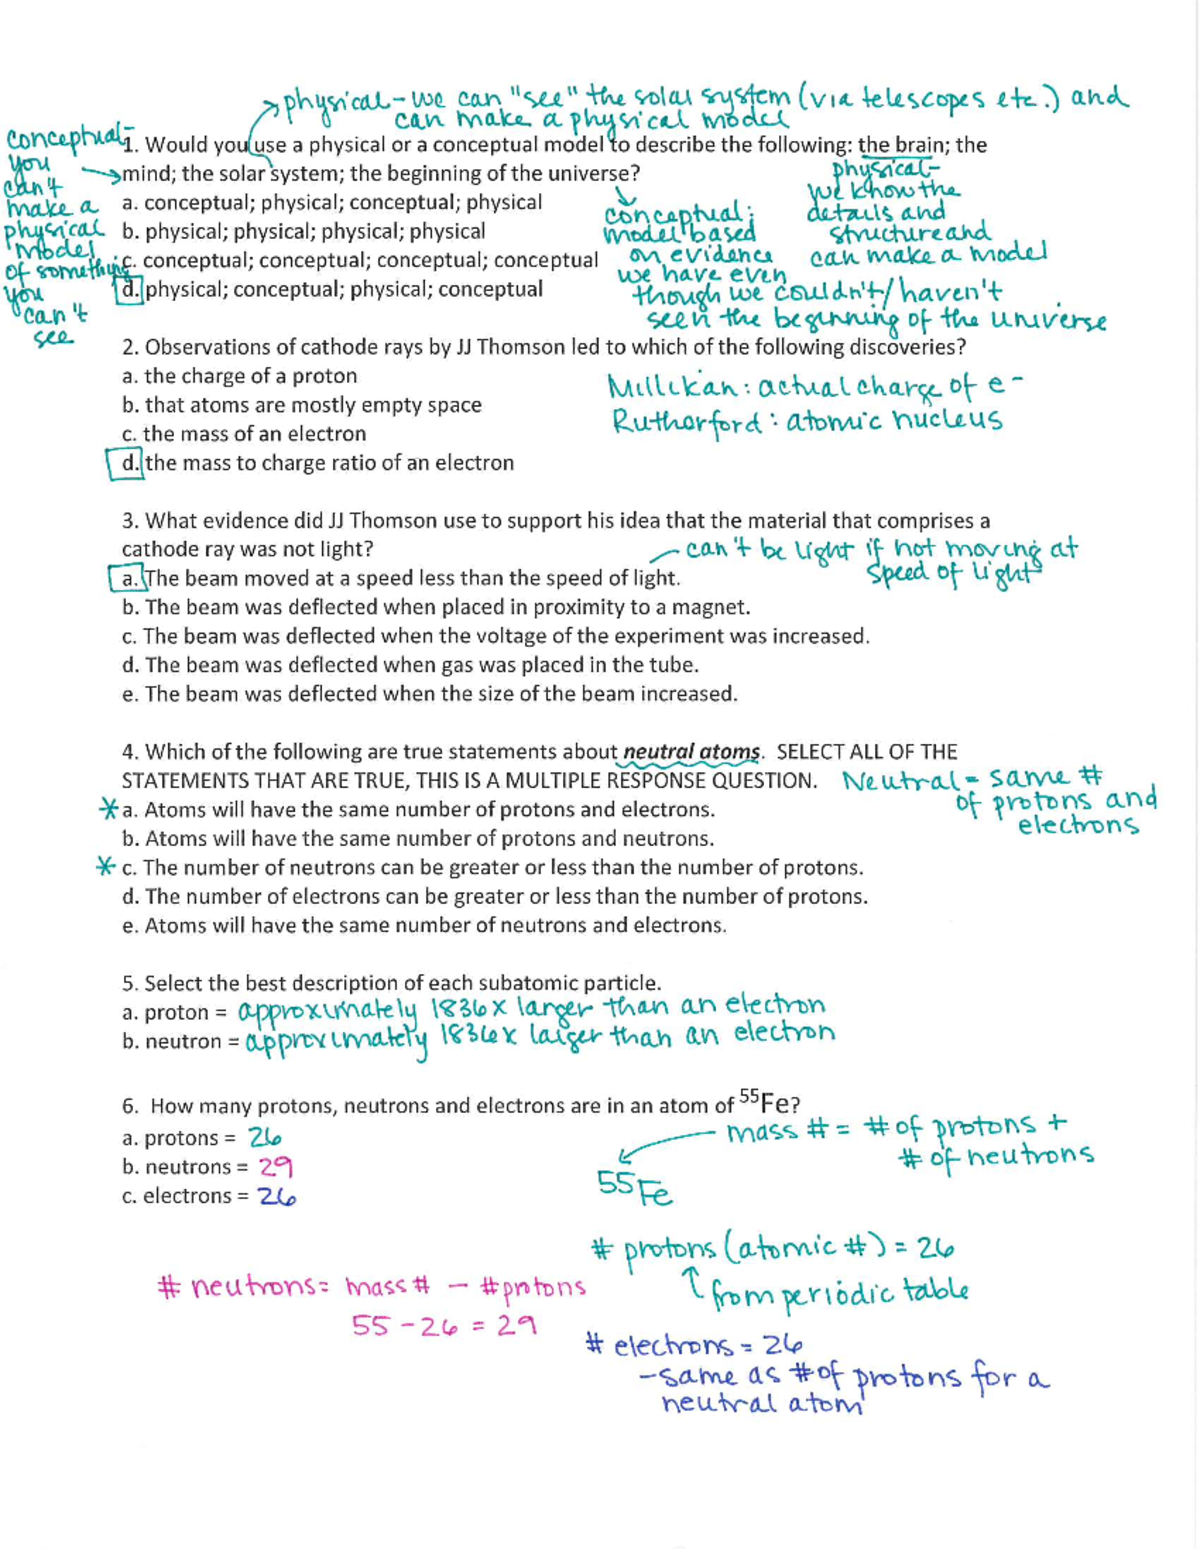 physical - we can "see" the solar system (via telescopes etc.) and
can make a physical model
conceptual-
you
can't
make a
physical
model
of something
you
can't
see
1. Would you use a physical or a conceptual model to describe the following: the brain; the
mind; the solar system; the beginning of the universe?
a. conceptual; physical; conceptual; physical
b. physical; physical; physical; physical
c. conceptual; conceptual; conceptual; conceptual
d. physical; conceptual; physical; conceptual
physical-
we know the
details and
structure and
can make a model
conceptual;
model based
on evidence
we have even
though we couldn't/haven't
seen the beginning of the universe
2. Observations of cathode rays by JJ Thomson led to which of the following discoveries?
a. the charge of a proton
b. that atoms are mostly empty space
c. the mass of an electron
d. the mass to charge ratio of an electron
Millikan: actual charge of e-
Rutherford: atomic nucleus
3. What evidence did JJ Thomson use to support his idea that the material that comprises a
cathode ray was not light?
a. The beam moved at a speed less than the speed of light.
b. The beam was deflected when placed in proximity to a magnet.
c. The beam was deflected when the voltage of the experiment was increased.
d. The beam was deflected when gas was placed in the tube.
e. The beam was deflected when the size of the beam increased.
can't be light if not moving at
speed of light
4. Which of the following are true statements about neutral atoms. SELECT ALL OF THE
STATEMENTS THAT ARE TRUE, THIS IS A MULTIPLE RESPONSE QUESTION.
Neutral = same #
of protons and
electrons
* a. Atoms will have the same number of protons and electrons.
b. Atoms will have the same number of protons and neutrons.
* c. The number of neutrons can be greater or less than the number of protons.
d. The number of electrons can be greater or less than the number of protons.
e. Atoms will have the same number of neutrons and electrons.
5. Select the best description of each subatomic particle.
a. proton = approximately 1836x larger than an electron
b. neutron = approximately 1836x larger than an electron
6. How many protons, neutrons and electrons are in an atom of 55Fe?
a. protons = 26
b. neutrons = 29
c. electrons = 26
mass # = # of protons +
# of neutrons
55Fe
# protons (atomic #) = 26
from periodic table
# neutrons = mass # - # protons
55 - 26 = 29
# electrons = 26
- same as # of protons for a
neutral atom